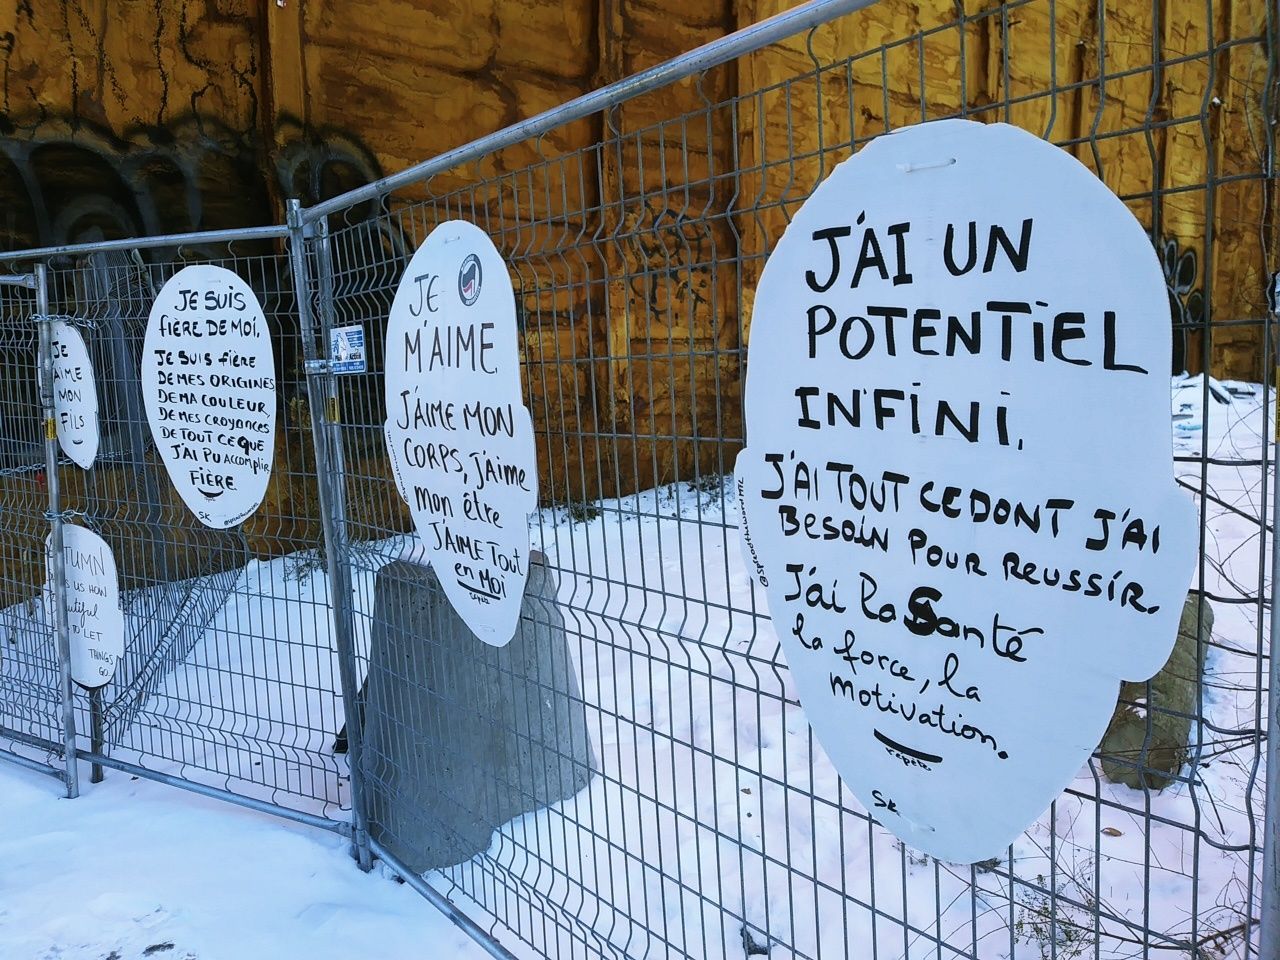 JE
AIME
MON
FILS
TUMN
US HOW
TO LET
THINGS
GO.
JE SUIS
FIÈRE DE MOI,
JE SUIS FIÈRE
DE MES ORIGINES
DE MA COULEUR,
DE MES CROYANCES
DE TOUT CE QUE
J'AI PU ACCOMPLIR
FIÈRE
SK
JE
M'AIME
J'AIME MON
CORPS, J'AIME
MON être
J'AIME TOUT
en MOI
répète
J'AI UN
POTENTIEL
INFINI.
J'AI TOUT CE DONT J'AI
BESOIN POUR REUSSIR.
J'ai la Santé
la force, la
Motivation.
répète
SK
@spreadthewordMTL